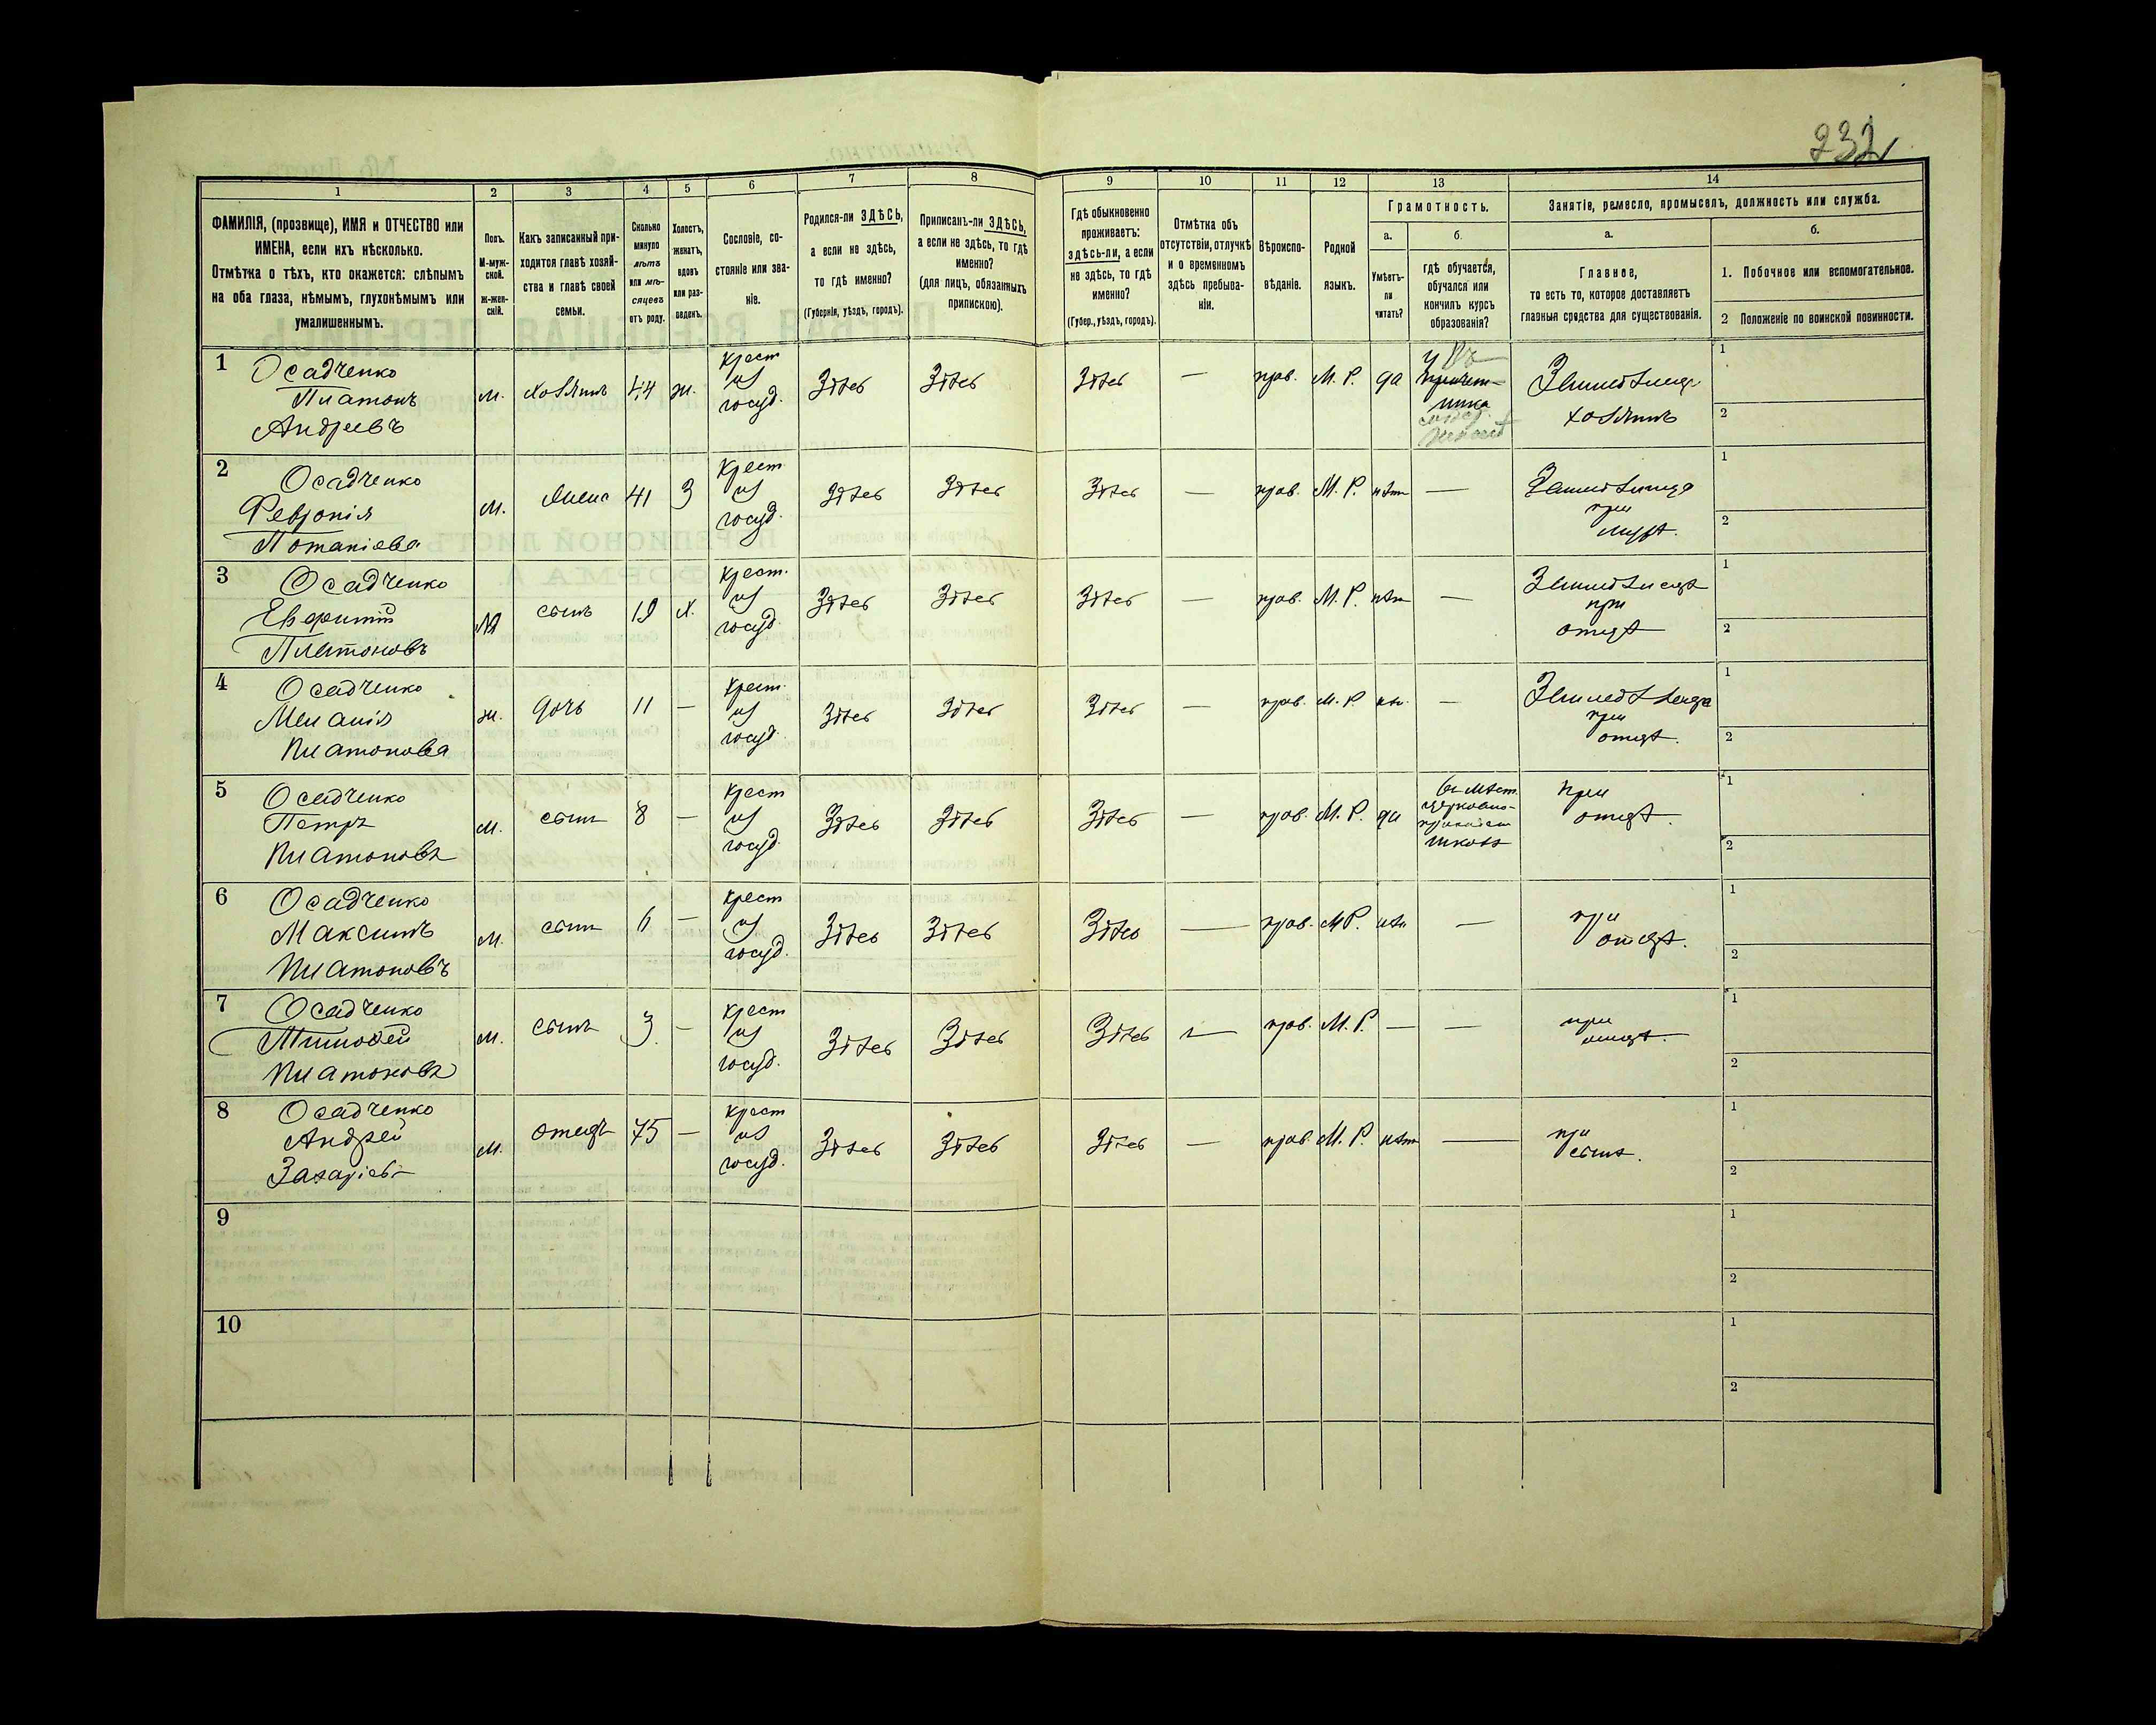 232
1 2 3 4 5 6 7 8 9 10 11 12 13 14
ФАМИЛІЯ, (прозвище), ИМЯ и ОТЧЕСТВО или
ИМЕНА, если ихъ нѣсколько.
Отмѣтка о тѣхъ, кто окажется: слѣпымъ
на оба глаза, нѣмымъ, глухонѣмымъ или
умалишеннымъ.
Полъ.
М-муж-
ской.
ж-жен-
скій.
Какъ записанный при-
ходится главѣ хозяй-
ства и главѣ своей
семьи.
Сколько
минуло
лѣтъ
или мѣ-
сяцевъ
отъ роду.
Холостъ,
женатъ,
вдовъ
или раз-
веденъ.
Сословіе, со-
стояніе или зва-
ніе.
Родился-ли ЗДѢСЬ,
а если не здѣсь,
то гдѣ именно?
(Губернія, уѣздъ, городъ).
Приписанъ-ли ЗДѢСЬ,
а если не здѣсь, то гдѣ
именно?
(для лицъ, обязанныхъ
припискою).
Гдѣ обыкновенно
проживаетъ:
здѣсь-ли, а если
не здѣсь, то гдѣ
именно?
(Губер., уѣздъ, городъ).
Отмѣтка объ
отсутствіи, отлучкѣ
и о временномъ
здѣсь пребыва-
ніи.
Вѣроиспо-
вѣданіе.
Родной
языкъ.
Грамотность.
а.
Умѣетъ-
ли
читать?
б.
гдѣ обучается,
обучался или
кончилъ курсъ
образованія?
Занятіе, ремесло, промыселъ, должность или служба.
а.
Главное,
то есть то, которое доставляетъ
главныя средства для существованія.
б.
1. Побочное или вспомогательное.
2 Положеніе по воинской повинности.
1 Осадченко
Платонъ
Андреевъ
м. хозяинъ 44 ж.
крест
из
госуд.
Здѣсь Здѣсь Здѣсь — прав. М. Р. да
у
Земледѣлецъ
хозяинъ
1
2
2 Осадченко
Февронія
Потапіева
м. жена 41 З
крест
из
госуд.
Здѣсь Здѣсь Здѣсь — прав. М. Р. нѣт —
при
мужѣ.
1
2
3 Осадченко
Евфимій
Платоновъ
М сынъ 19 х.
крест.
из
госуд.
Здѣсь Здѣсь Здѣсь — прав. М. Р. нѣт —
при
отцѣ
1
2
4 Осадченко
Меланія
Платонова
ж. дочь 11 —
крест.
из
госуд.
Здѣсь Здѣсь Здѣсь — прав. М. Р. нѣт. —
при
отцѣ.
1
2
5 Осадченко
Петръ
Платоновъ
м. сынъ 8 —
крест
из
госуд.
Здѣсь Здѣсь Здѣсь — прав. М. Р. да
въ мѣст.
церковно-
приходск
школѣ
при
отцѣ.
1
2
6 Осадченко
Максимъ
Платоновъ
м. сынъ 6 —
крест
из
госуд.
Здѣсь Здѣсь Здѣсь — прав. М Р. нѣт —
при
отцѣ.
1
2
7 Осадченко
Тимофей
Платоновъ
м. сынъ 3 —
крест
из
госуд.
Здѣсь Здѣсь Здѣсь — прав. М. Р. — —
при
отцѣ.
1
2
8 Осадченко
Андрей
Захаріев
м. отецъ 75 —
крест
из
госуд.
Здѣсь Здѣсь Здѣсь — прав. М. Р. нѣт —
при
сынѣ.
1
2
9
1
2
10
1
2